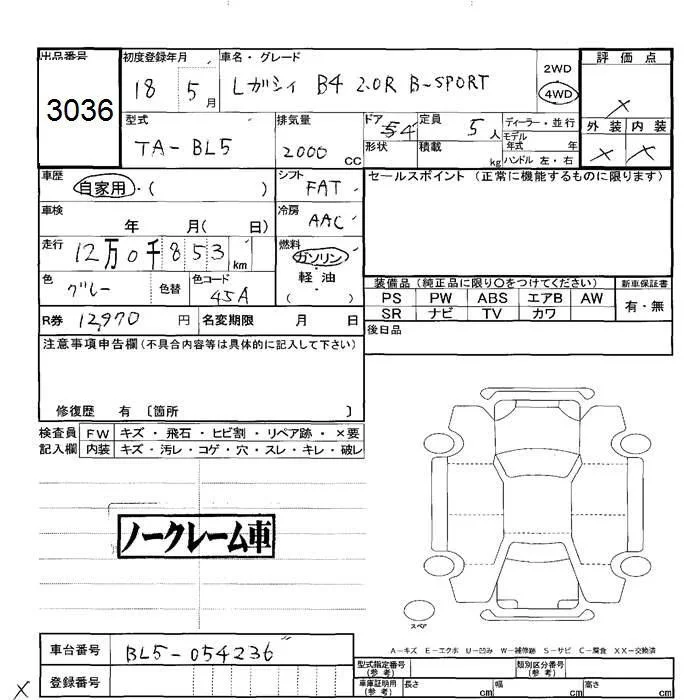 出品番号 初度登録年月 車名・グレード 評価点
3036 18 5月 Lガシィ B4 2.0R B-SPORT 2WD 4WD ×
型式 排気量 ドア 54 定員 5人 ディーラー・並行 外装 内装
TA-BL5 2000 CC 形状 積載 kg モデル年式 年 × ×
ハンドル 左・右
車歴 自家用・( ) シフト FAT セールスポイント (正常に機能するものに限ります)
車検 年 月( 日) 冷房 AAC
走行 12万0千853km 燃料 ガソリン
軽・油
( )
色 グレー 色替 色コード 45A
装備品(純正品に限り○をつけてください) 新車保証書
PS PW ABS エアB AW 有・無
SR ナビ TV カワ
R券 12,970円 名変期限 月 日 後日品
注意事項申告欄(不具合内容等は具体的に記入して下さい)
修復歴 有 〔箇所 〕
検査員 FW キズ・飛石・ヒビ割・リペア跡・×要
記入欄 内装 キズ・汚レ・コゲ・穴・スレ・キレ・破レ
ノークレーム車
スペア
A−キズ E−エクボ U−凹み W−補修跡 S−サビ C−腐食 XX−交換済
車台番号 BL5-054236
登録番号
型式指定番号(参考) 類別区分番号(参考)
車庫証明用(参考) 長さ cm 幅 cm 高さ cm
×